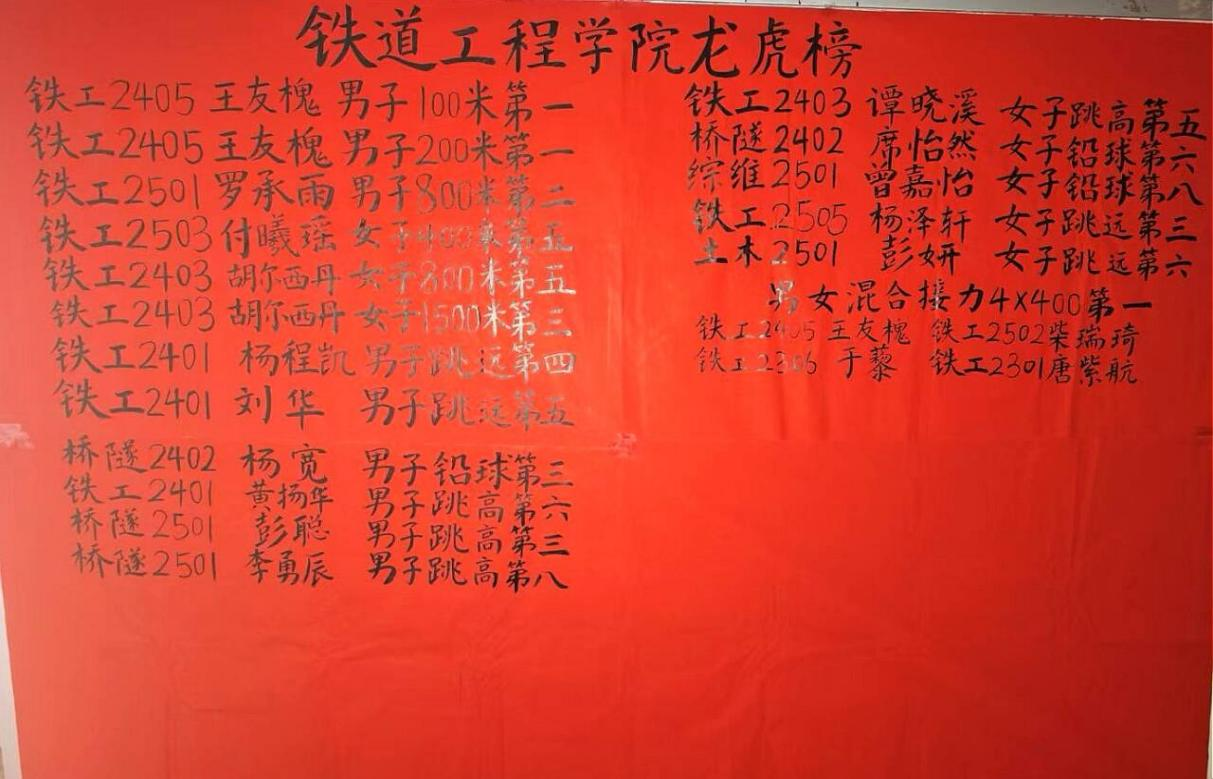 铁道工程学院龙虎榜
铁工2405 王友槐 男子100米第一
铁工2405 王友槐 男子200米第一
铁工2501 罗承雨 男子800米第二
铁工2503 付曦瑶 女子400米第五
铁工2403 胡尔西丹 女子800米第五
铁工2403 胡尔西丹 女子1500米第三
铁工2401 杨程凯 男子跳远第四
铁工2401 刘华 男子跳远第五
桥隧2402 杨宽 男子铅球第三
铁工2401 黄扬华 男子跳高第六
桥隧2501 彭聪 男子跳高第三
桥隧2501 李勇辰 男子跳高第八
铁工2403 谭晓溪 女子跳高第五
桥隧2402 席怡然 女子铅球第六
综维2501 曾嘉怡 女子铅球第八
铁工2505 杨泽轩 女子跳远第三
土木2501 彭妍 女子跳远第六
男女混合接力4X400第一
铁工2405 王友槐 铁工2502柴瑞琦
铁工2306 于藜 铁工2301唐紫航